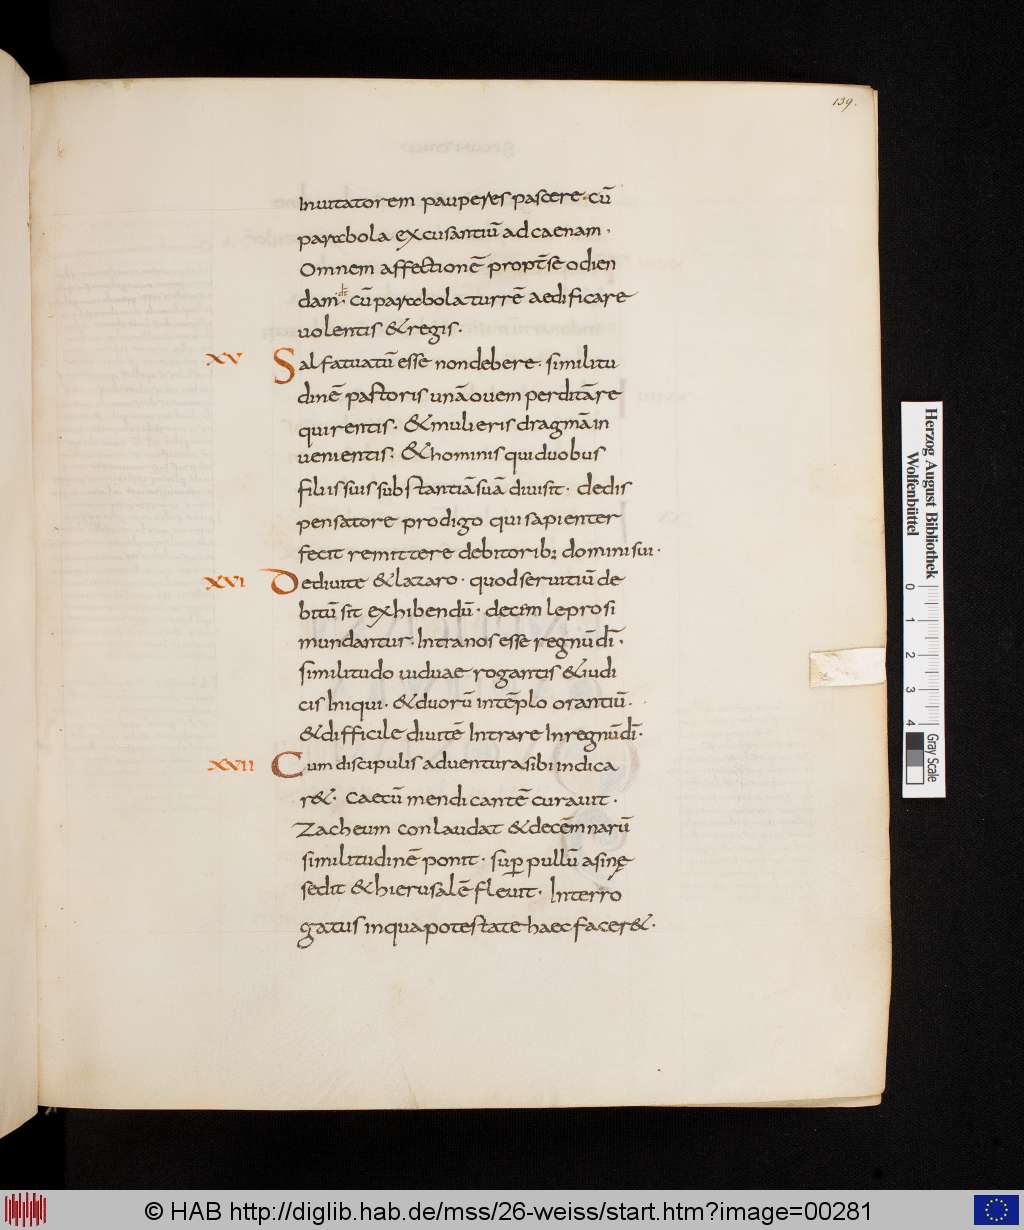 139.
Inuitatorem pauperes pascere · cū
parabola excusantiū ad caenam ·
Omnem affectionē propt̄ se odien
dam · cū parabola turrē aedificare
uolentis & regis ·
XV Sal fatuatū esse non debere · similitu
dinē pastoris unā ouem perditā re
quirentis · & mulieris dragmā in
uenientis · & hominis qui duobus
filiis suis substantiā suā diuisit · de dis
pensatore prodigo qui sapienter
fecit remittere debitorib; domini sui ·
XVI De diuite & lazaro · quod seruitiū de
bitū sit exhibendū · decim leprosi
mundantur · Intra nos esse regnū dī ·
similitudo uiduae rogantis & iudi
cis Iniqui · & duorū in tēplo orantiū ·
& difficile diuitē Intrare In regnū dī ·
XXII Cum discipulis aduentura sibi indica
r& · caecū mendicantē curauit ·
Zacheum conlaudat & decēm narū
similitudinē ponit · sup pullū asinę
sedit & hierusalē fleuit · Interro
gatus in qua potestate haec facer& ·
Herzog August Bibliothek
Wolfenbüttel
0 1 2 3 4
Gray Scale
© HAB http://diglib.hab.de/mss/26-weiss/start.htm?image=00281